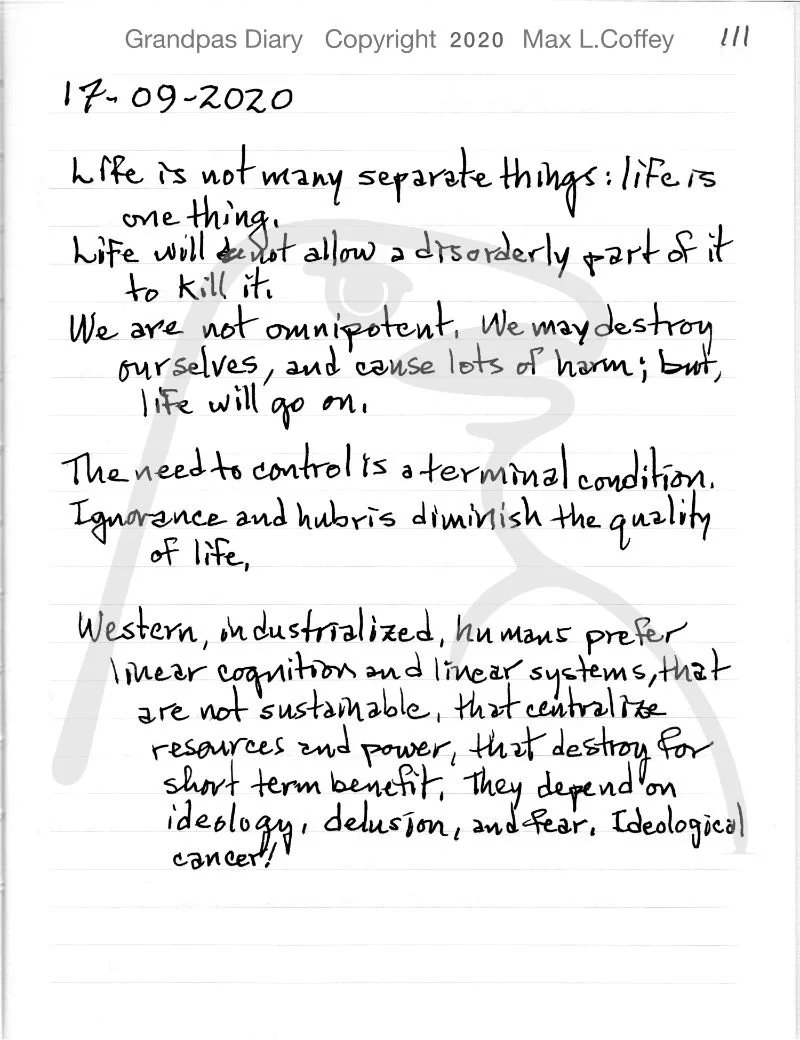 Grandpas Diary Copyright 2020 Max L.Coffey 111
17-09-2020
Life is not many separate things: life is
one thing.
Life will not allow a disorderly part of it
to kill it.
We are not omnipotent. We may destroy
ourselves, and cause lots of harm; but,
life will go on.
The need to control is a terminal condition.
Ignorance and hubris diminish the quality
of life.
Western, industrialized, humans prefer
linear cognition and linear systems, that
are not sustainable, that centralize
resources and power, that destroy for
short term benefit. They depend on
ideology, delusion, and fear. Ideological
cancer!